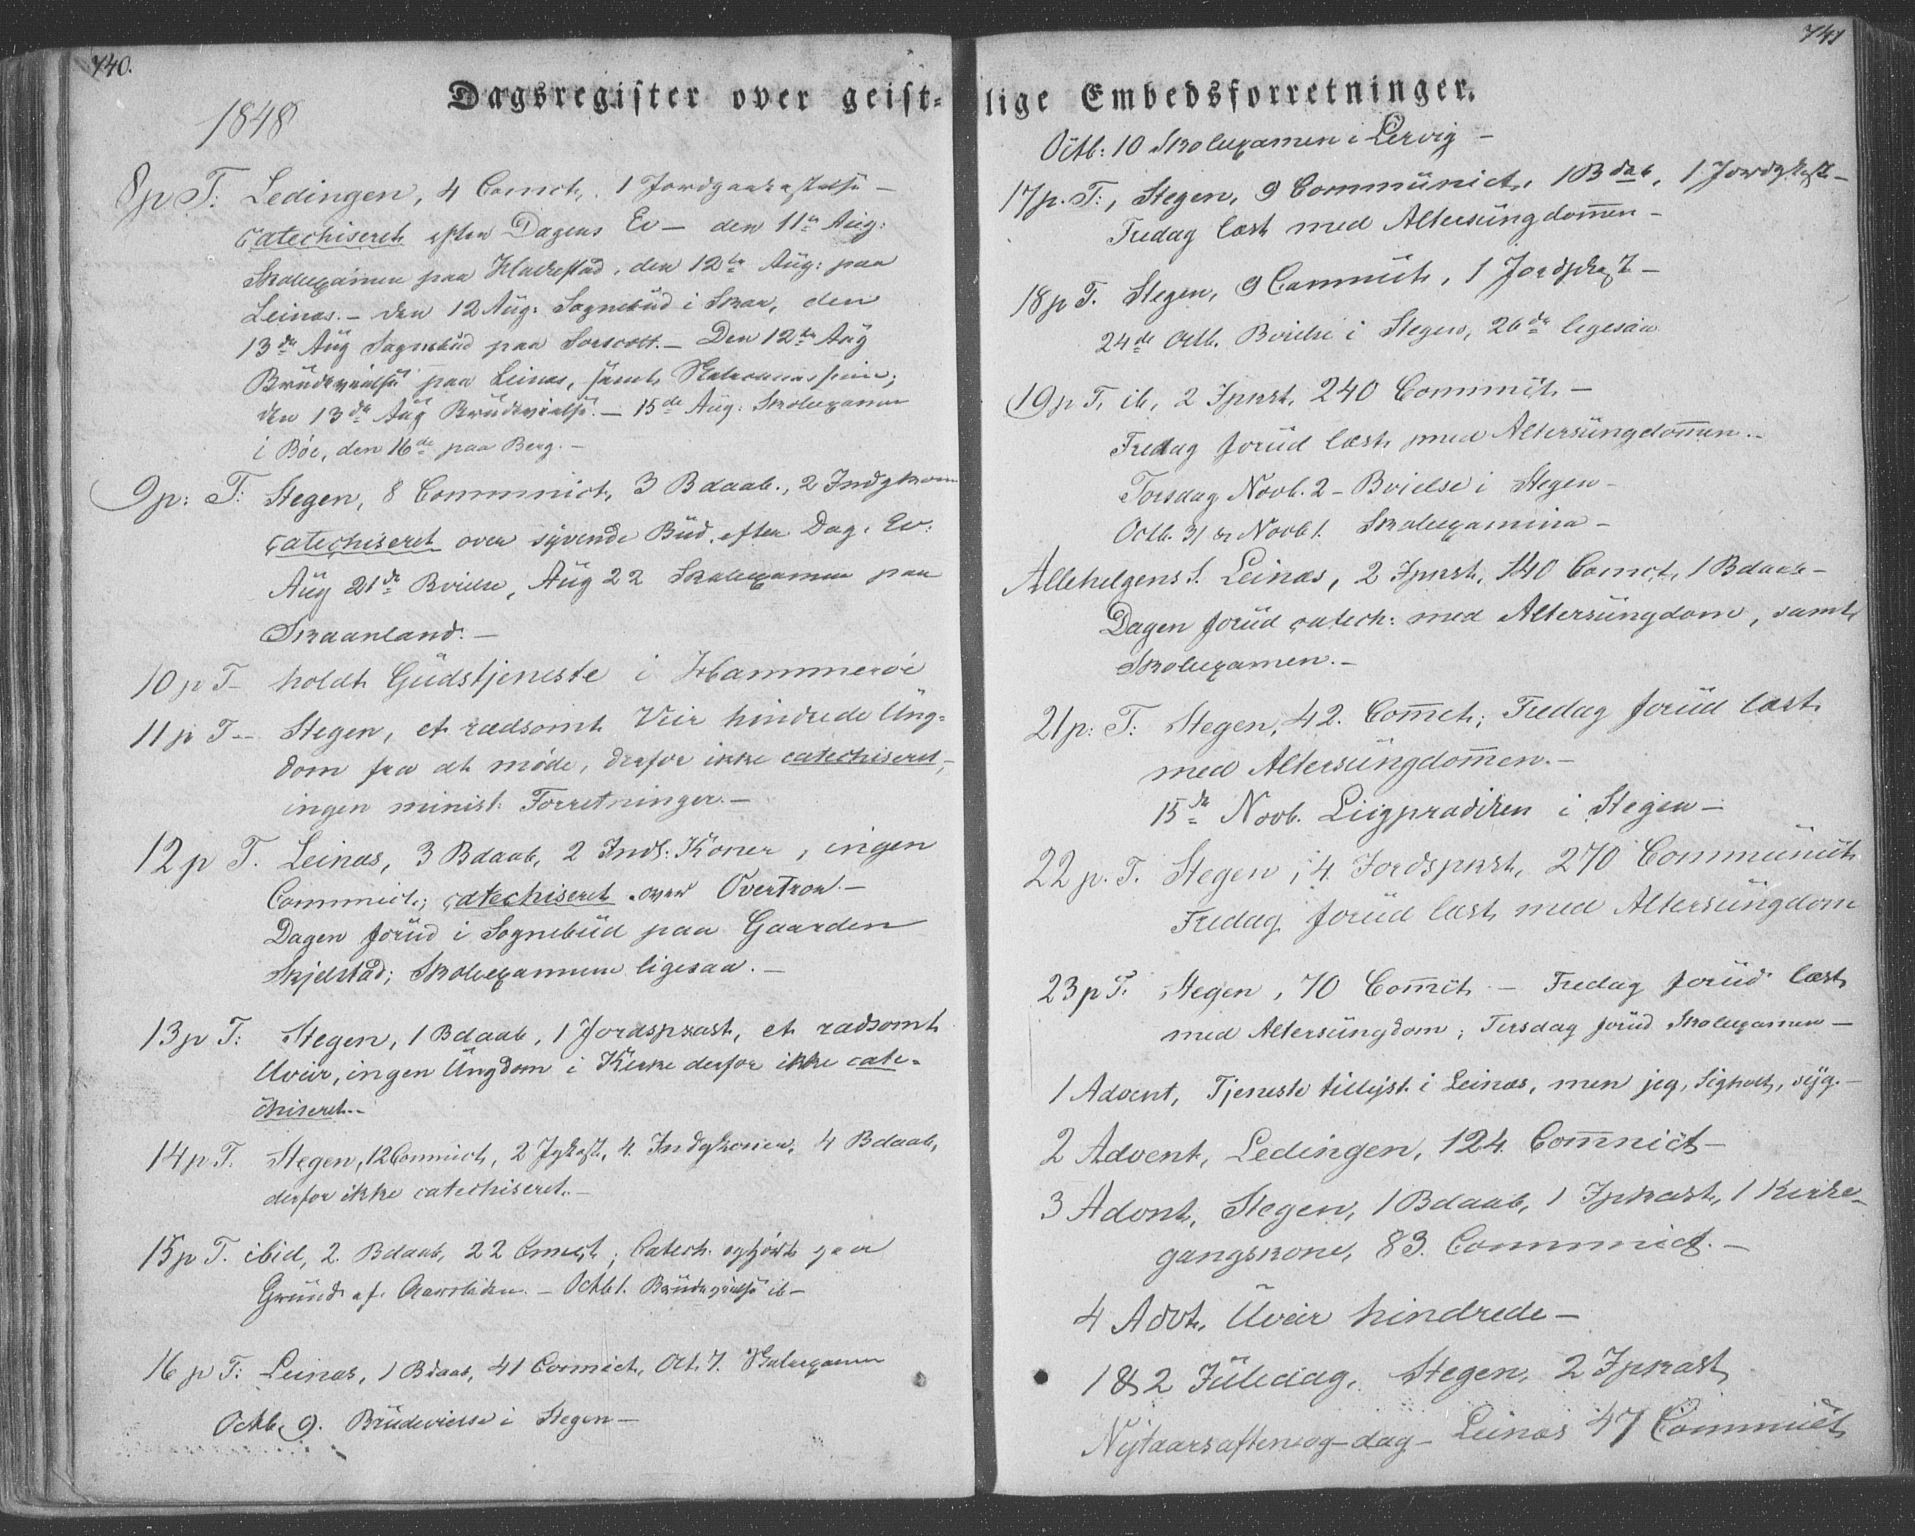 740.
Dagsregister over geist-
1848
8 p T: Ledingen, 4 Comct, 1 Jordpaakastelse –
catechiseret efter Dagens Ev – den 11te Aug:
Skolexamen paa , den 12te Aug: paa
Leinæs. – den 12 Aug: Sognebud i Skar, den
13de Aug Sognebud paa – Den 12te Aug
Brudevielse paa Leinæs, samt ;
den 13de Aug Brudevielse. – 15de Aug: Skolexamen
i Böe, den 16de paa Berg. –
9 p: T: Stegen, 8 Communict, 3 Bdaab., 2 Indgkon
catechiseret over syvende Bud, efter Dag. Ev:
Aug 21de Bvielse, Aug 22 Skolexamen paa
Skaanland. –
10 p T – holdt Gudstjeneste i Hammeröe
11 p T – Stegen, et rædsomt Veir hindrede Ung=
dom fra at møde, derfor ikke catechiseret,
ingen minist. Forretninger. –
12 p T. Leinæs, 3 Bdaab, 2 Indl: Koner, ingen
Commict; catechiseret over Overtroe –
Dagen forud i Sognebud paa Gaarden
Skjelstad; Skolexamen ligesaa. –
13 p T: Stegen, 1 Bdaab, 1 Jordspkast, et rædsomt
Uveir, ingen Ungdom i Kirke derfor ikke cate=
chiseret. –
14 p T. Stegen, 12 Commict, 2 , 4 Indgkoner, 4 Bdaab,
derfor ikke catechiseret. –
15 p T. ibid, 2 Bdaab, 22 Cmct; Catech. ophört paa
Grund af Aarstiden. – Octb 1. Brudevielse ib –
16 p T: Leinæs, 1 Bdaab, 41 Commict, Oct. 7. Skolexamen
Octb. 9. Brudevielse i Stegen –
741
lige Embedsforretninger.
Octb: 10 Skolexamen i Lervig –
17 p. T:, Stegen, 9 Communict, 1 Bdab, 1 Jordpkast –
Fredag læst med Altersungdommen –
18 p T. Stegen, 9 Commüct, 1 Jordpkast –
24de Octb. Bvielse i Stegen, 26de ligesaa
19 p T, ib, 2 Jpkast, 240 Commict –
Fredag forud læst med Altersungdommen. –
Torsdag Novb. 2 – Bvielse i Stegen –
Octb. 31 & Novb 1. Skolexamina –
Allehelgens S. Leinæs, 2 Jpkast, 140 Comct, 1 Bdaab –
Dagen forud catech: med Altersungdom, samt
Skolexamen. –
21 p: T: Stegen, 42. Comct; Fredag forud læst
med Altersungdommen. –
15de Novb. Liigprædiken i Stegen –
22 p. T. Stegen, 4 Jordspkast, 270 Communict
Fredag forud læst med Altersungdom
23 p T. Stegen, 70 Comct – Fredag forud læst
med Altersungdom; Tirsdag forud Skolexamen –
1 Advent, Tjeneste tillyst i Leinæs, men jeg, , syg. –
2 Advent, Ledingen, 124 Commict –
3 Advnt, Stegen, 1 Bdaab, 1 Jpkast, 1 Kirke-
gangskone, 83. Commict. –
4 Advt. Uveir hindrede –
1 & 2 Juledag, Stegen, 2 Jpkast
Nytaarsaften og – dag – Leinæs 47 Commict